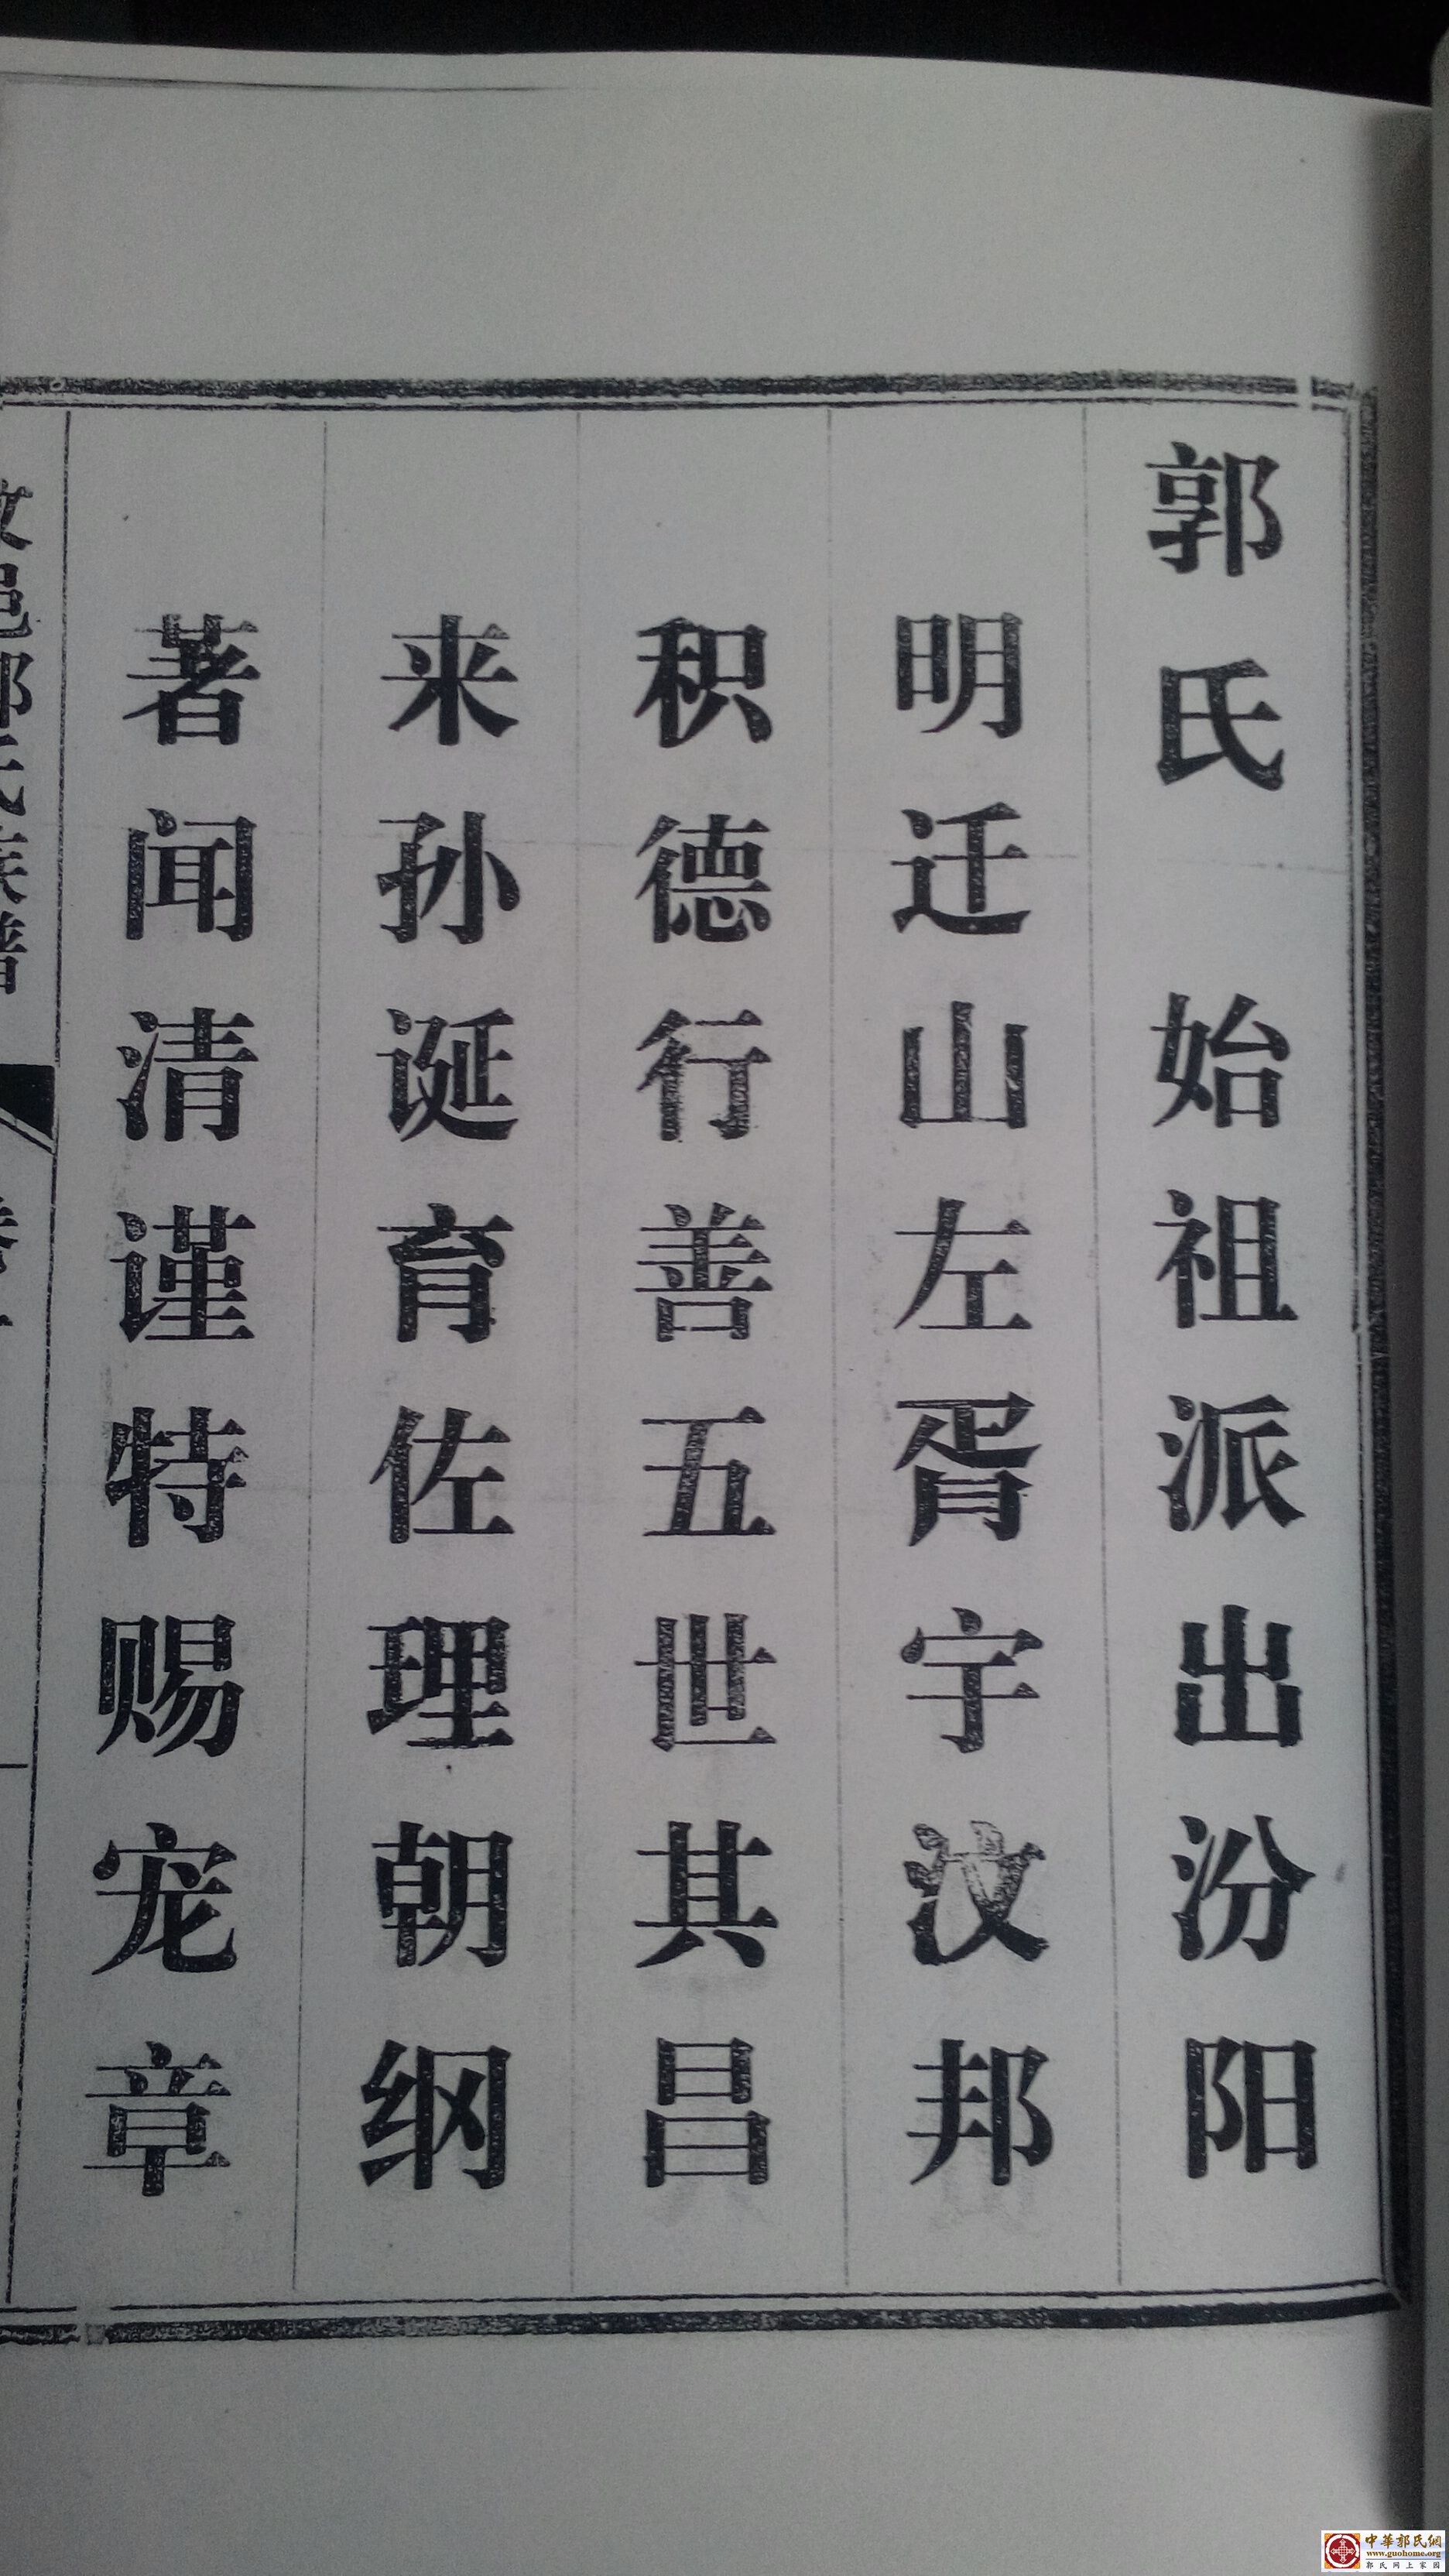 郭氏 始祖派出汾阳
明迁山左胥宇汶邦
积德行善五世其昌
来孙诞育佐理朝纲
著闻清谨特赐宠章
邑郭氏族谱
中華郭氏網
www.guohome.org
郭氏网上家园